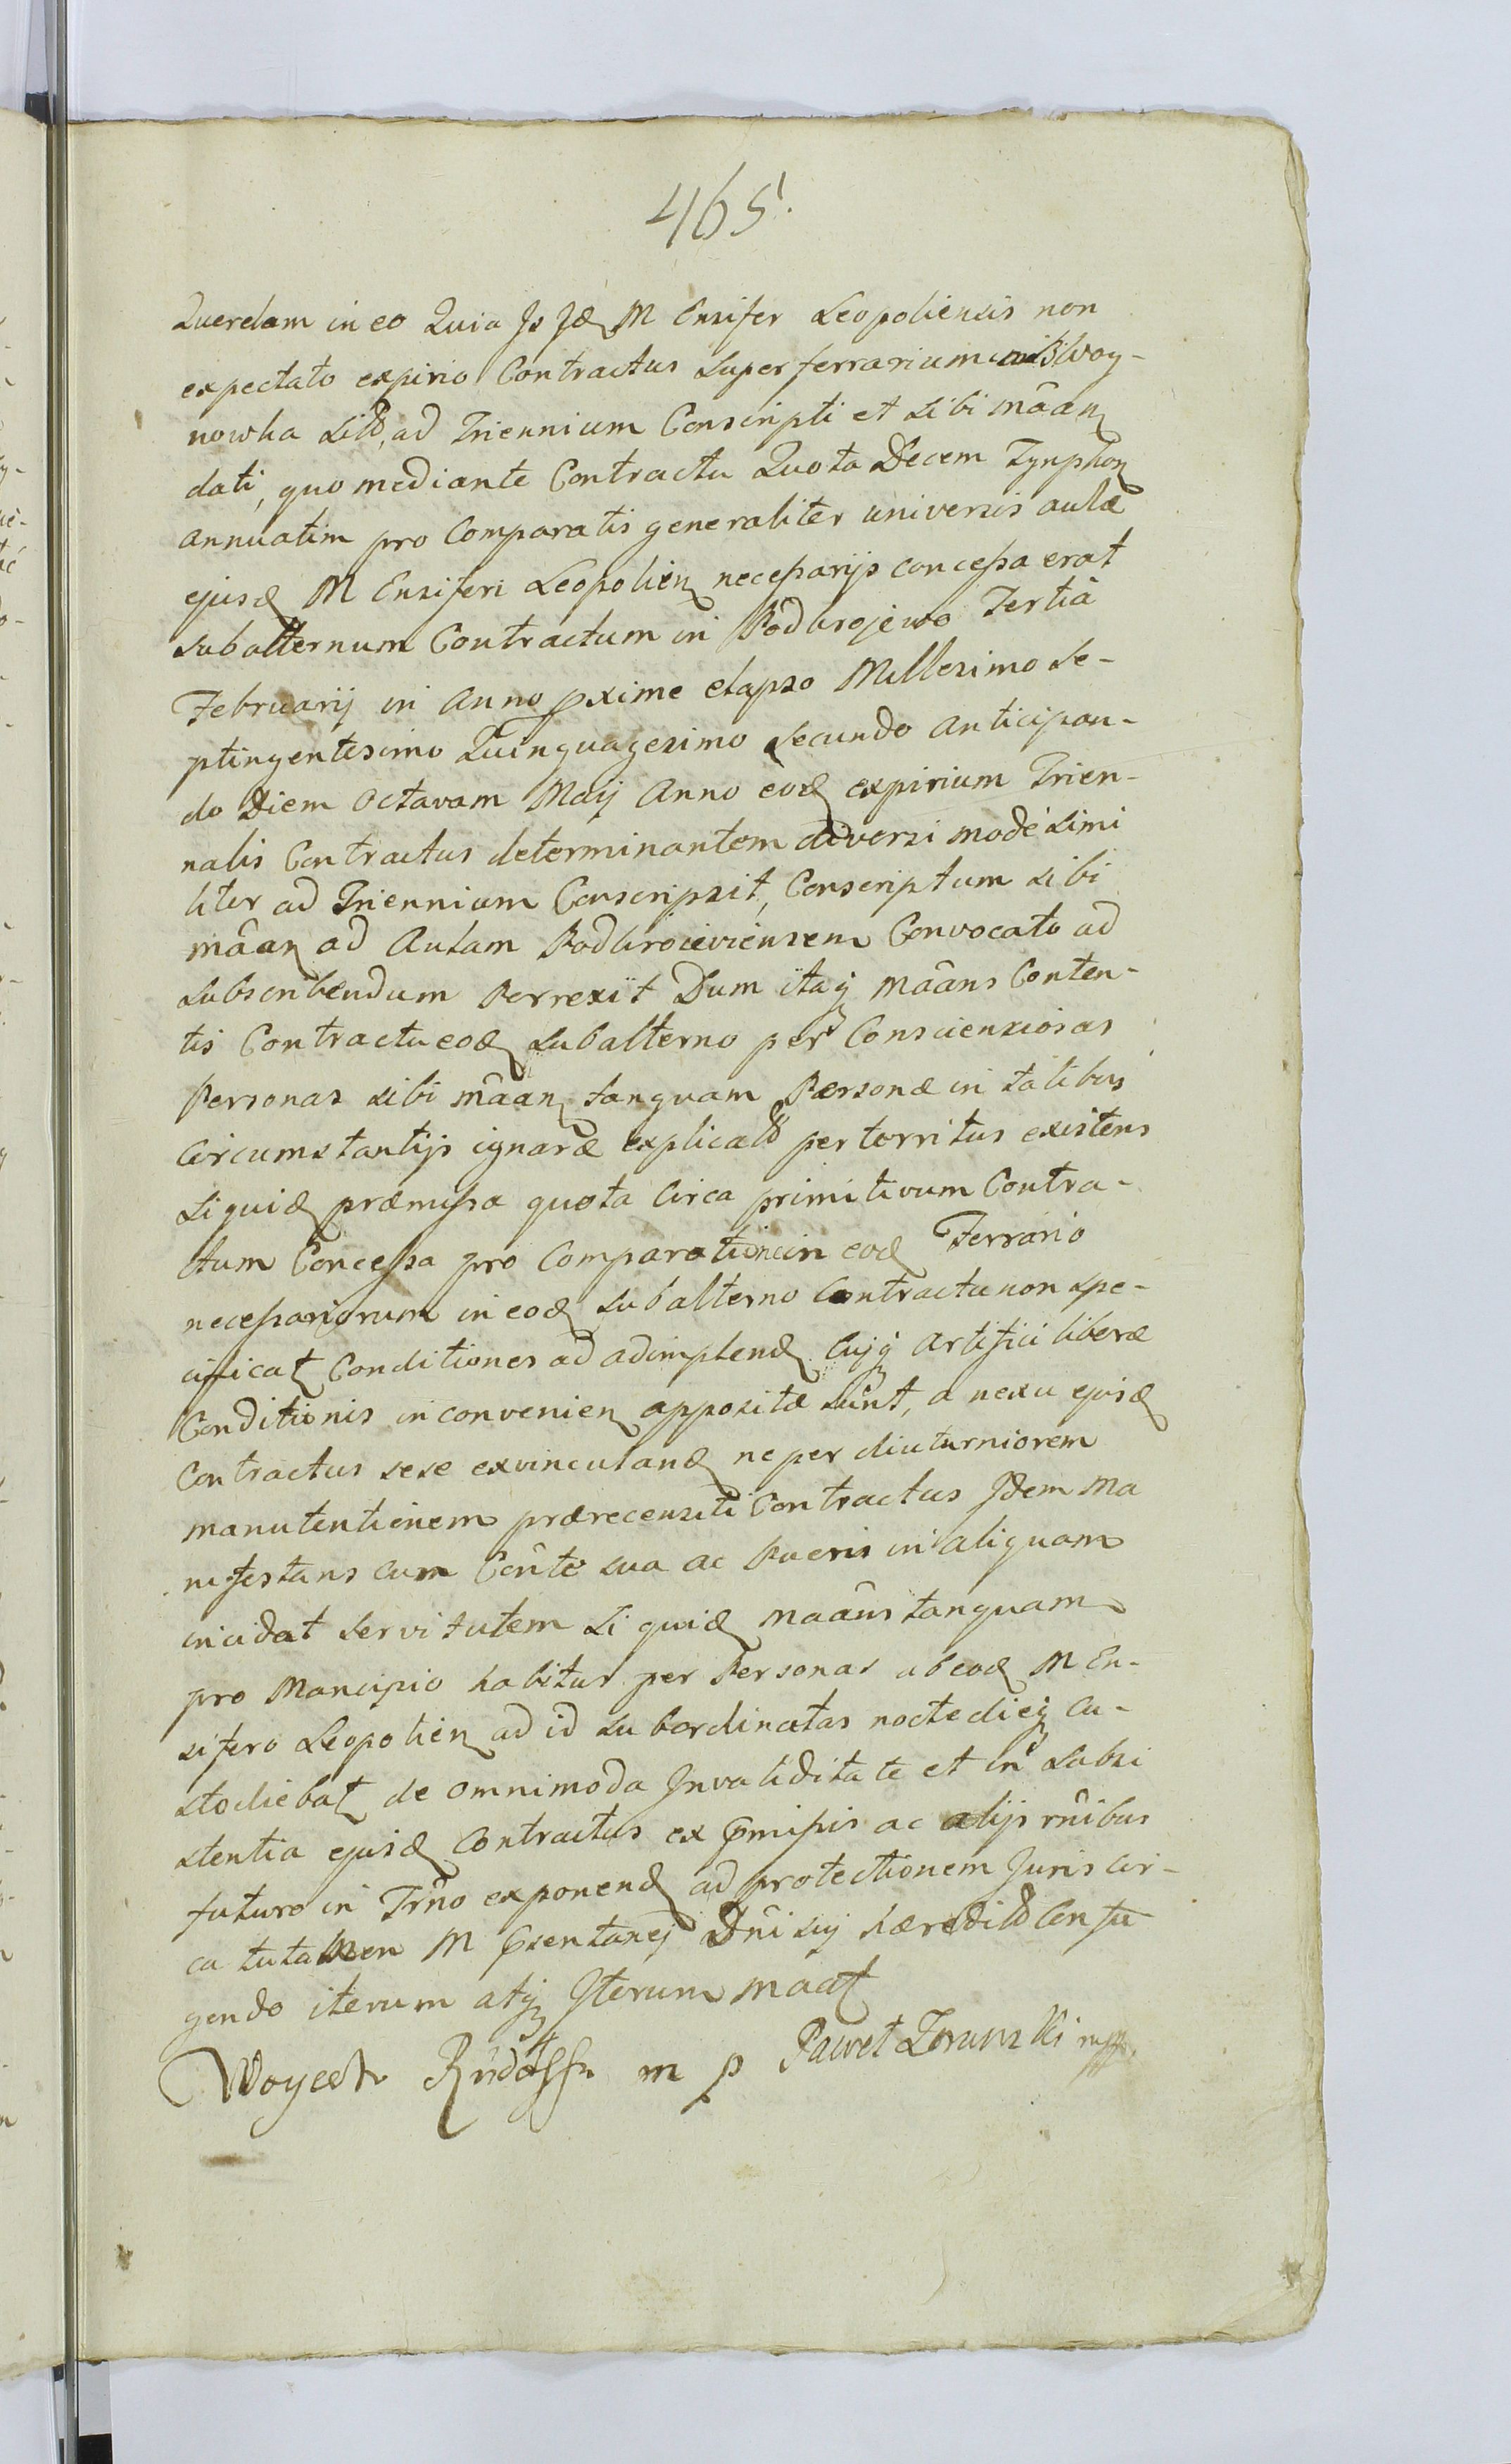 465.
Querelam in eo Quia Is Id M Ensifer Leopoliensis non
expectato expirio Contractus super ferrarium in Woy-
nowka sitt, ad Triennium Conscripti et sibi mâan
dati, quo mediante Contractu Quota Decem Tynphon
annuatim pro Comparatis generaliter universis aulæ
ejusd M Ensiferi Leopolien necessarijs concessa erat
subalternum Contractum in Podbrojewo Tertiâ
Februarij in Anno pxime elapso Millesimo Se-
ptingentesimo Quinquagesimo secundo anticipan-
do Diem Octavam Maij Anno eod expirium Trien-
nalis Contractus determinantem diversi mode simi
liter ad Triennium Conscripsit, Conscriptum sibi
mâan ad Aulam Podbroieviensem Convocato ad
subscribendum Perrexit Dum itaq mâans Conten-
tis Contractu eod subalterno per Conscienciosas
Personas sibi mâan tanquam Personæ in talibus
Circumstantijs ignaræ explicatt perterritus existens
siquid præmissa quota Circa primitivum Contra-
ctum Concessa pro Comparatione in eod Ferrario
necessariorum in eod subalterno Contractu non spe-
cificat Conditiones ad adimplend Cujq artifici liberæ
Conditionis inconvenien appositæ sunt, a nexu ejusd
Contractus sese exvinculand ne per diuturniorem
manutentionem prærecensiti Contractus Idem Ma
nifestans cum Conte sua ac Pueris in aliquam
incidat servitutem si quid mâans tanquam
pro Mancipio habitus per Personas ab eod M En-
sifero Leopolien ad id subordinatas nocte dieq cu-
stodiebat de omnimoda Invaliditate et in subsi
stentia ejusd Contractus ex pmissis ac alijs rnibus
futuro in Trno exponend ad protectionem Juris cir-
ca tutamen M psentanej Dni sui hæreditt Confu-
gendo iterum atq Iterum maat
Woyciech Rudolff m p Paweł Zorawski mpp